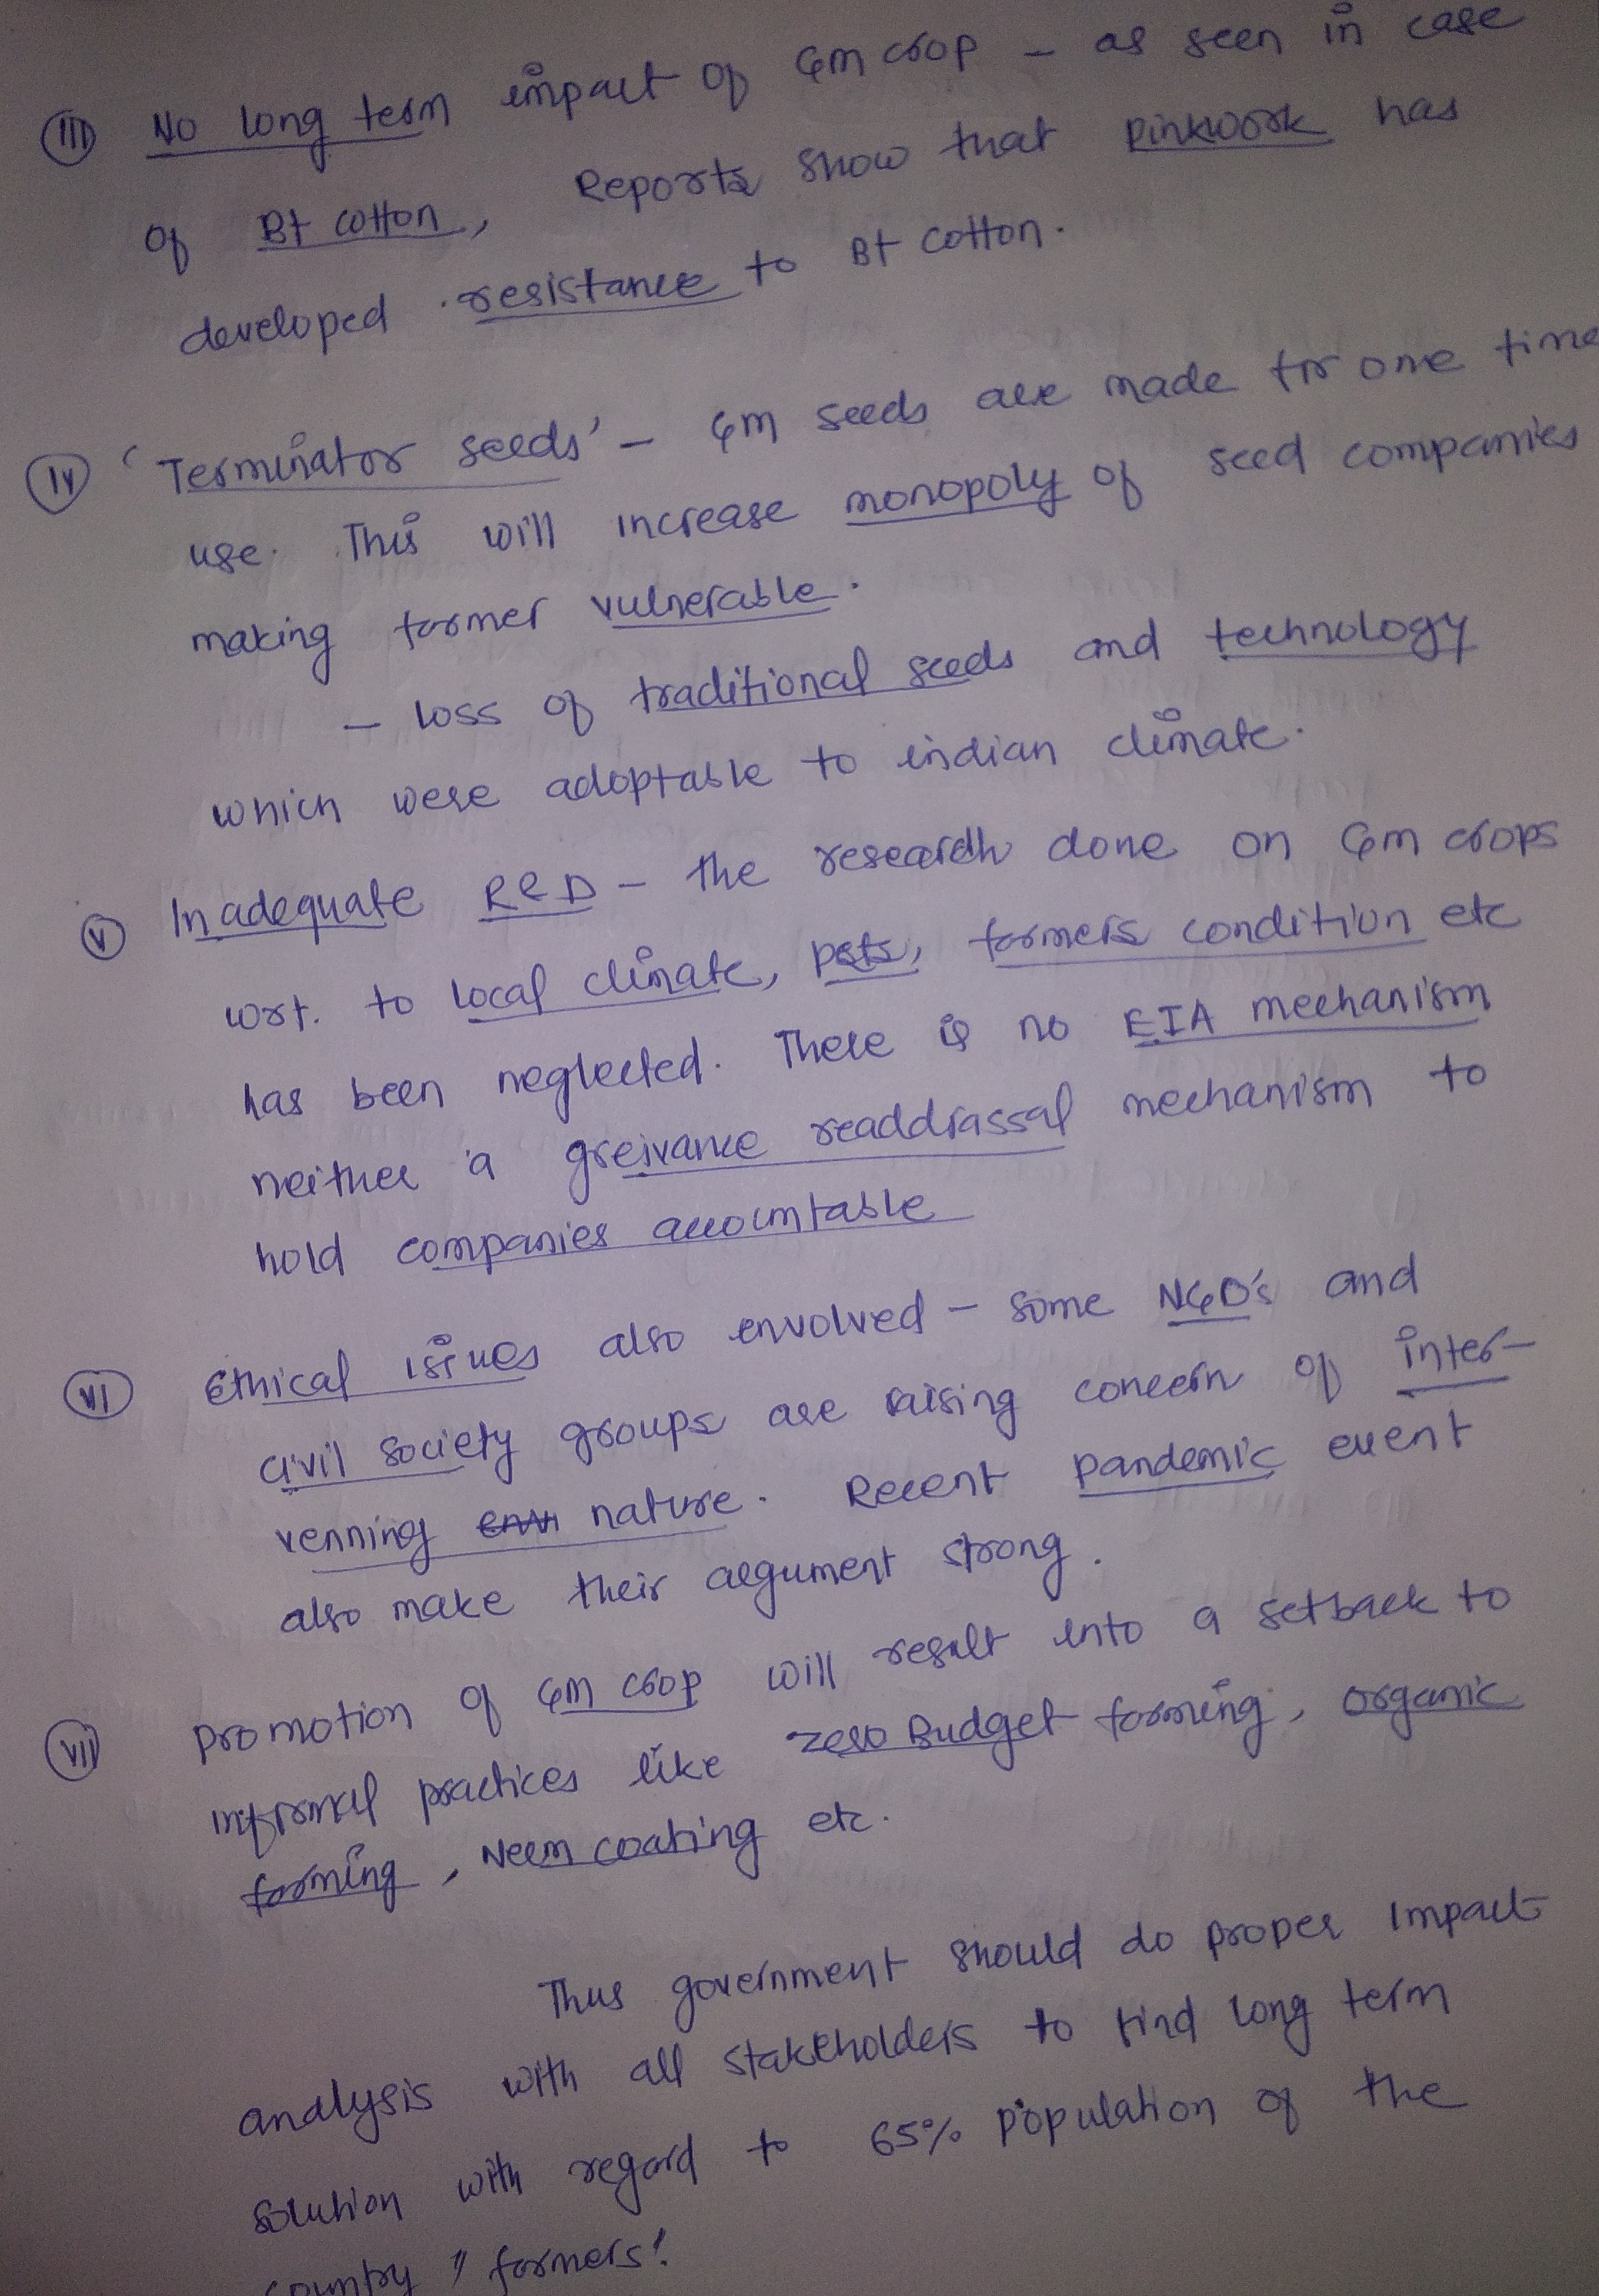 (III) No long term impact of GM crop - as seen in case
of Bt cotton, Reports show that Pinkwork has
developed resistance to Bt cotton.
(IV) 'Terminator seeds' - GM seeds are made for one time
use. This will increase monopoly of seed companies
making farmer vulnerable.
- loss of traditional seeds and technology
which were adoptable to indian climate.
(V) Inadequate R&D - the research done on GM crops
wrt. to local climate, psts, farmers condition etc
has been neglected. There is no EIA mechanism
neither a greivance readdrassal mechanism to
hold companies accountable
(VI) Ethical issues also envolved - some NGO's and
civil society groups are raising concern of inter-
venning nature. Recent pandemic event
also make their argument strong.
(VII) promotion of GM crop will result into a setback to
informal practices like zero Budget farming, organic
farming, Neem coating etc.
Thus government should do proper impact
analysis with all stakeholders to find long term
solution with regard to 65% population of the
country "farmers".